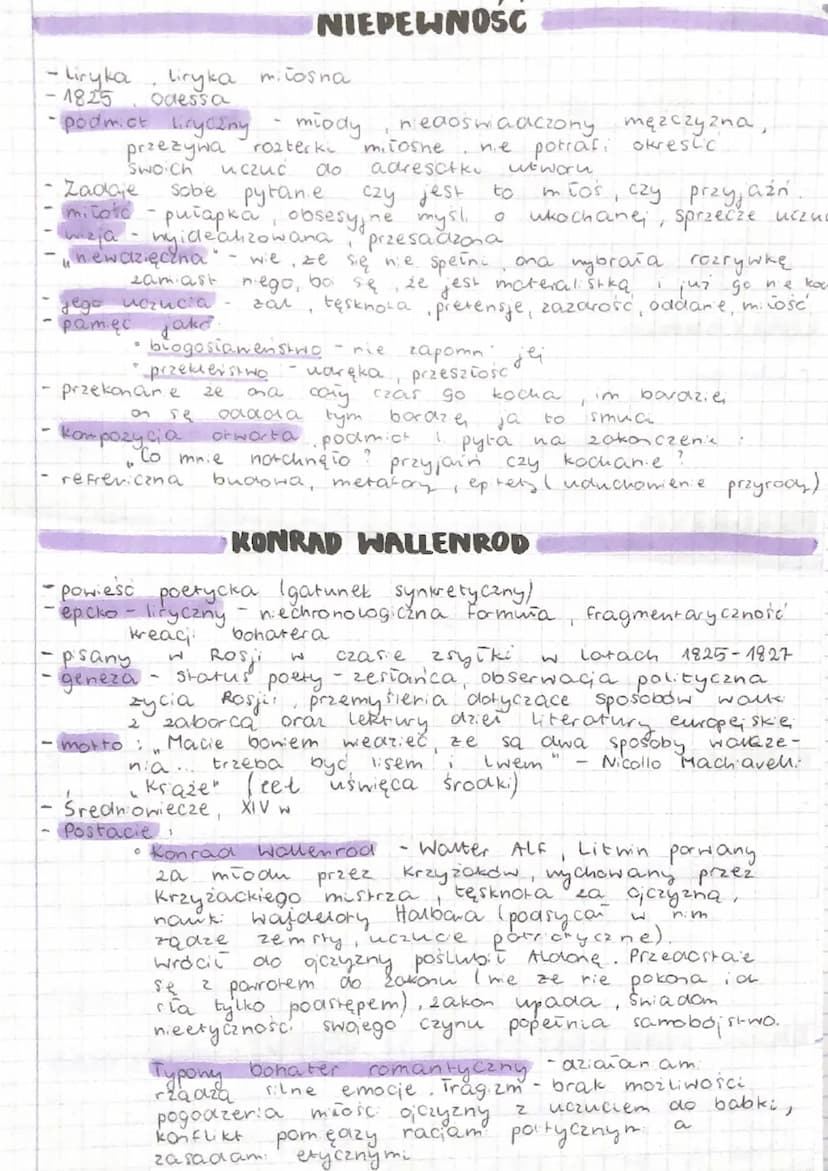 NIEPEWNOŚĆ
- liryka, liryka miłosna
- 1825, Odessa
- podmiot liryczny - młody, niedoświadczony mężczyzna,
przeżywa rozterki miłosne, nie potrafi określić
swoich uczuć do adresatki utworu
- Zadaje sobie pytanie czy jest to miłość, czy przyjaźń.
- miłość - pułapka, obsesyjne myśli o ukochanej, sprzecze uczu
- wizja - wyidealizowana, przesadzona
- „niewdzięczna" - wie, że się nie spełni, ona wybrała rozrywkę
zamiast niego, boi się, że jest materialistką i już go nie koc
- jego uczucia - żal, tęsknota, pretensje, zazdrość, oddanie, miłość
- pamięć jako:
• błogosławieństwo - nie zapomni jej
• przekleństwo - udręka, przeszłość
- przekonanie że ona cały czas go kocha, im bardziej
on się oddala tym bardziej ją to smuci
- kompozycja otwarta, podmiot l. pyta na zakończenie:
„Co mnie natchnęło? przyjaźń czy kochanie?
- refreniczna budowa, metafory, epitety (uduchowienie przyrody)
KONRAD WALLENROD
- powieść poetycka (gatunek synkretyczny)
- epicko - liryczny - niechronologiczna formuła, fragmentaryczność
kreacji bohatera
- pisany w Rosji w czasie zsyłki w latach 1825-1827
- geneza - status poety - zesłańca, obserwacja polityczna
życia Rosji, przemyślenia dotyczące sposobów walki
z zaborcą oraz lektury dzieł literatury europejskiej
- motto: „Macie bowiem wiedzieć, że są dwa sposoby walcze-
nia... trzeba być lisem i lwem" - Nicollo Machiavelli
„Książe" (cel uświęca środki)
- Średniowiecze, XIV w
- Postacie:
• Konrad Wallenrod - Walter Alf, Litwin porwany
za młodu przez Krzyżaków, wychowany przez
Krzyżackiego mistrza, tęsknota za ojczyzną,
nauki wajdeloty Halbana (podsycał w nim
żądze zemsty, uczucie patriotyczne).
wrócił do ojczyzny poślubił Aldonę. Przedostaje
się z powrotem do zakonu (wie że nie pokona ich
siłą tylko podstępem), zakon upada, świadom
nieetyczności swojego czynu popełnia samobójstwo.
Typowy bohater romantyczny - działaniami
rządzą silne emocje. Tragizm - brak możliwości
pogodzenia miłości ojczyzny z uczuciem do babki,
konflikt pomiędzy racjami politycznymi a
zasadami etycznymi